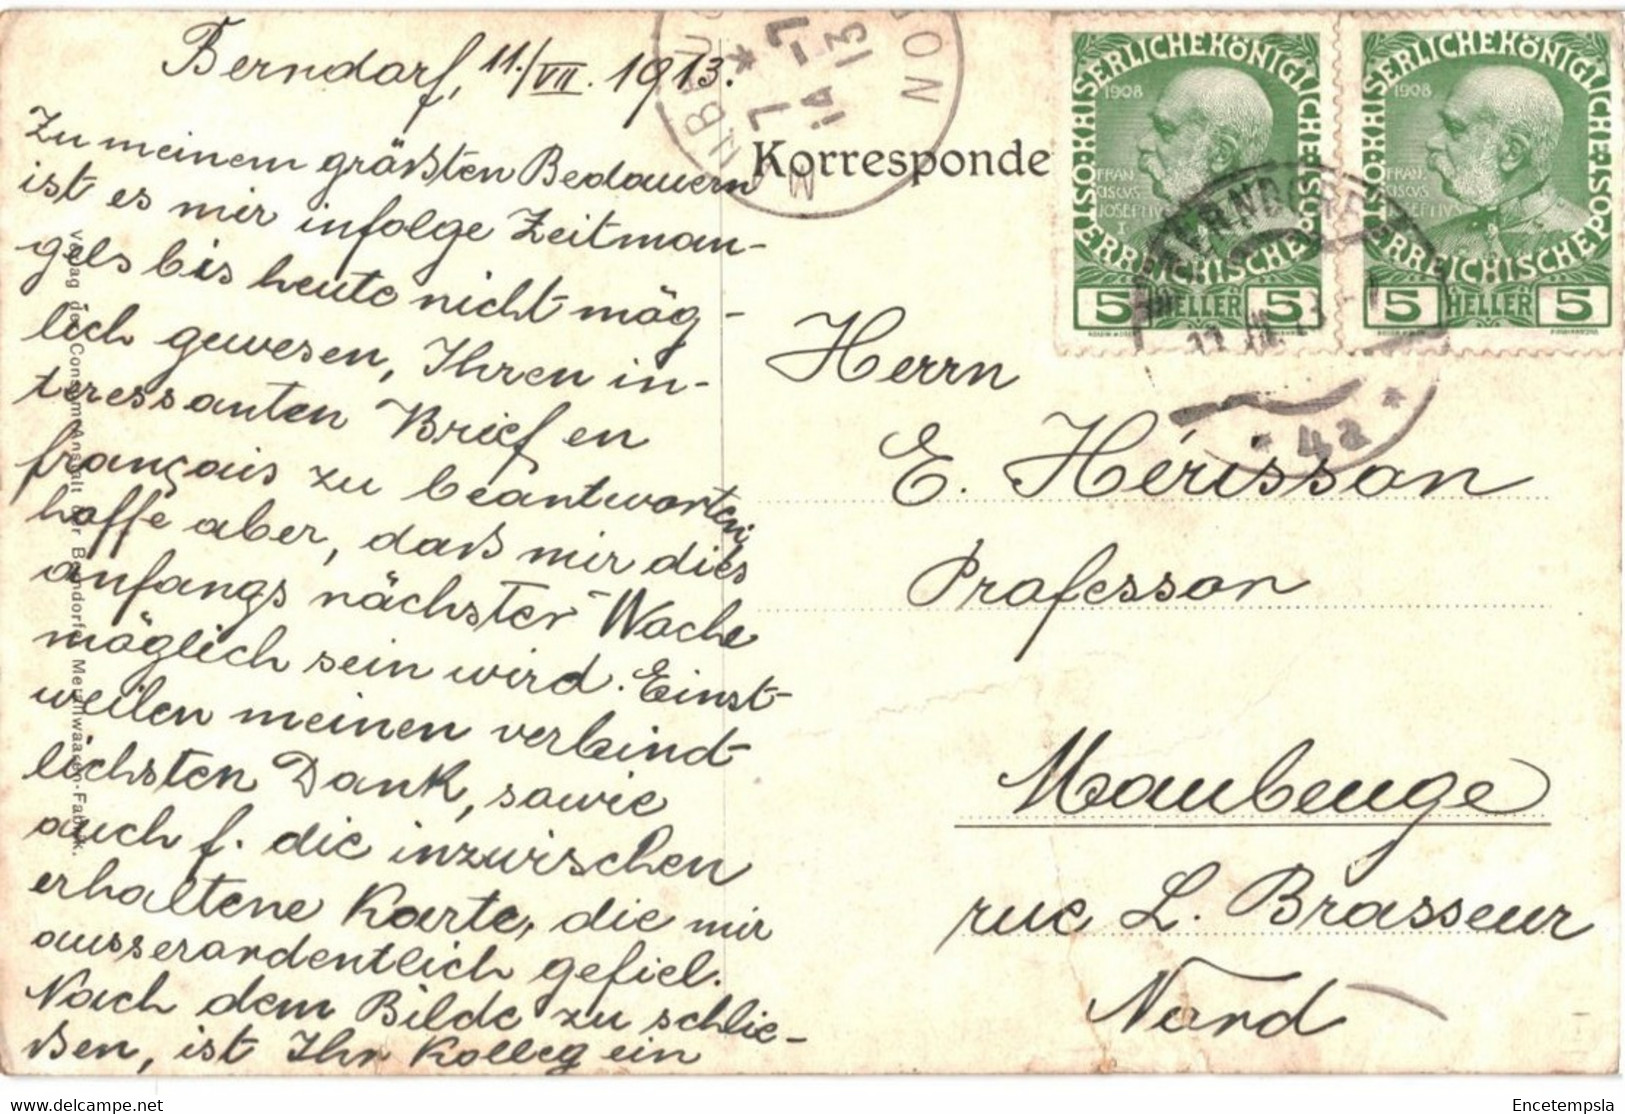 Berndorf, 11./VII. 1913.
Zu meinem größten Bedauern
ist es mir infolge Zeitman-
gels bis heute nicht mög-
lich gewesen, Ihren in-
teressanten Brief en
français zu beantworten,
hoffe aber, daß mir dies
anfangs nächster Woche
möglich sein wird. Einst-
weilen meinen verbind-
lichsten Dank, sowie
auch f. die inzwischen
erhaltene Karte, die mir
ausserordentlich gefiel.
Nach dem Bilde zu schlie-
ßen, ist Ihr Kolleg ein
Verlag der Consum-Anstalt der Berndorfer Metallwaaren-Fabrik.
Korresponde
MAUBEUGE
NORD
7 *
14 -7
13
KAISERLICHE KÖNIGLICHE ÖSTERREICHISCHE POST
1908
FRAN
CISCVS
IOSEPH
I
5 HELLER 5
KAISERLICHE KÖNIGLICHE ÖSTERREICHISCHE POST
1908
FRAN
CISCVS
IOSEPH
5 HELLER 5
BERNDORF
11 VII 13
* 4a *
Herrn
E. Hérisson
Professor
Maubeuge
rue L. Brasseur
Nord
delcampe.net
Encetempsla